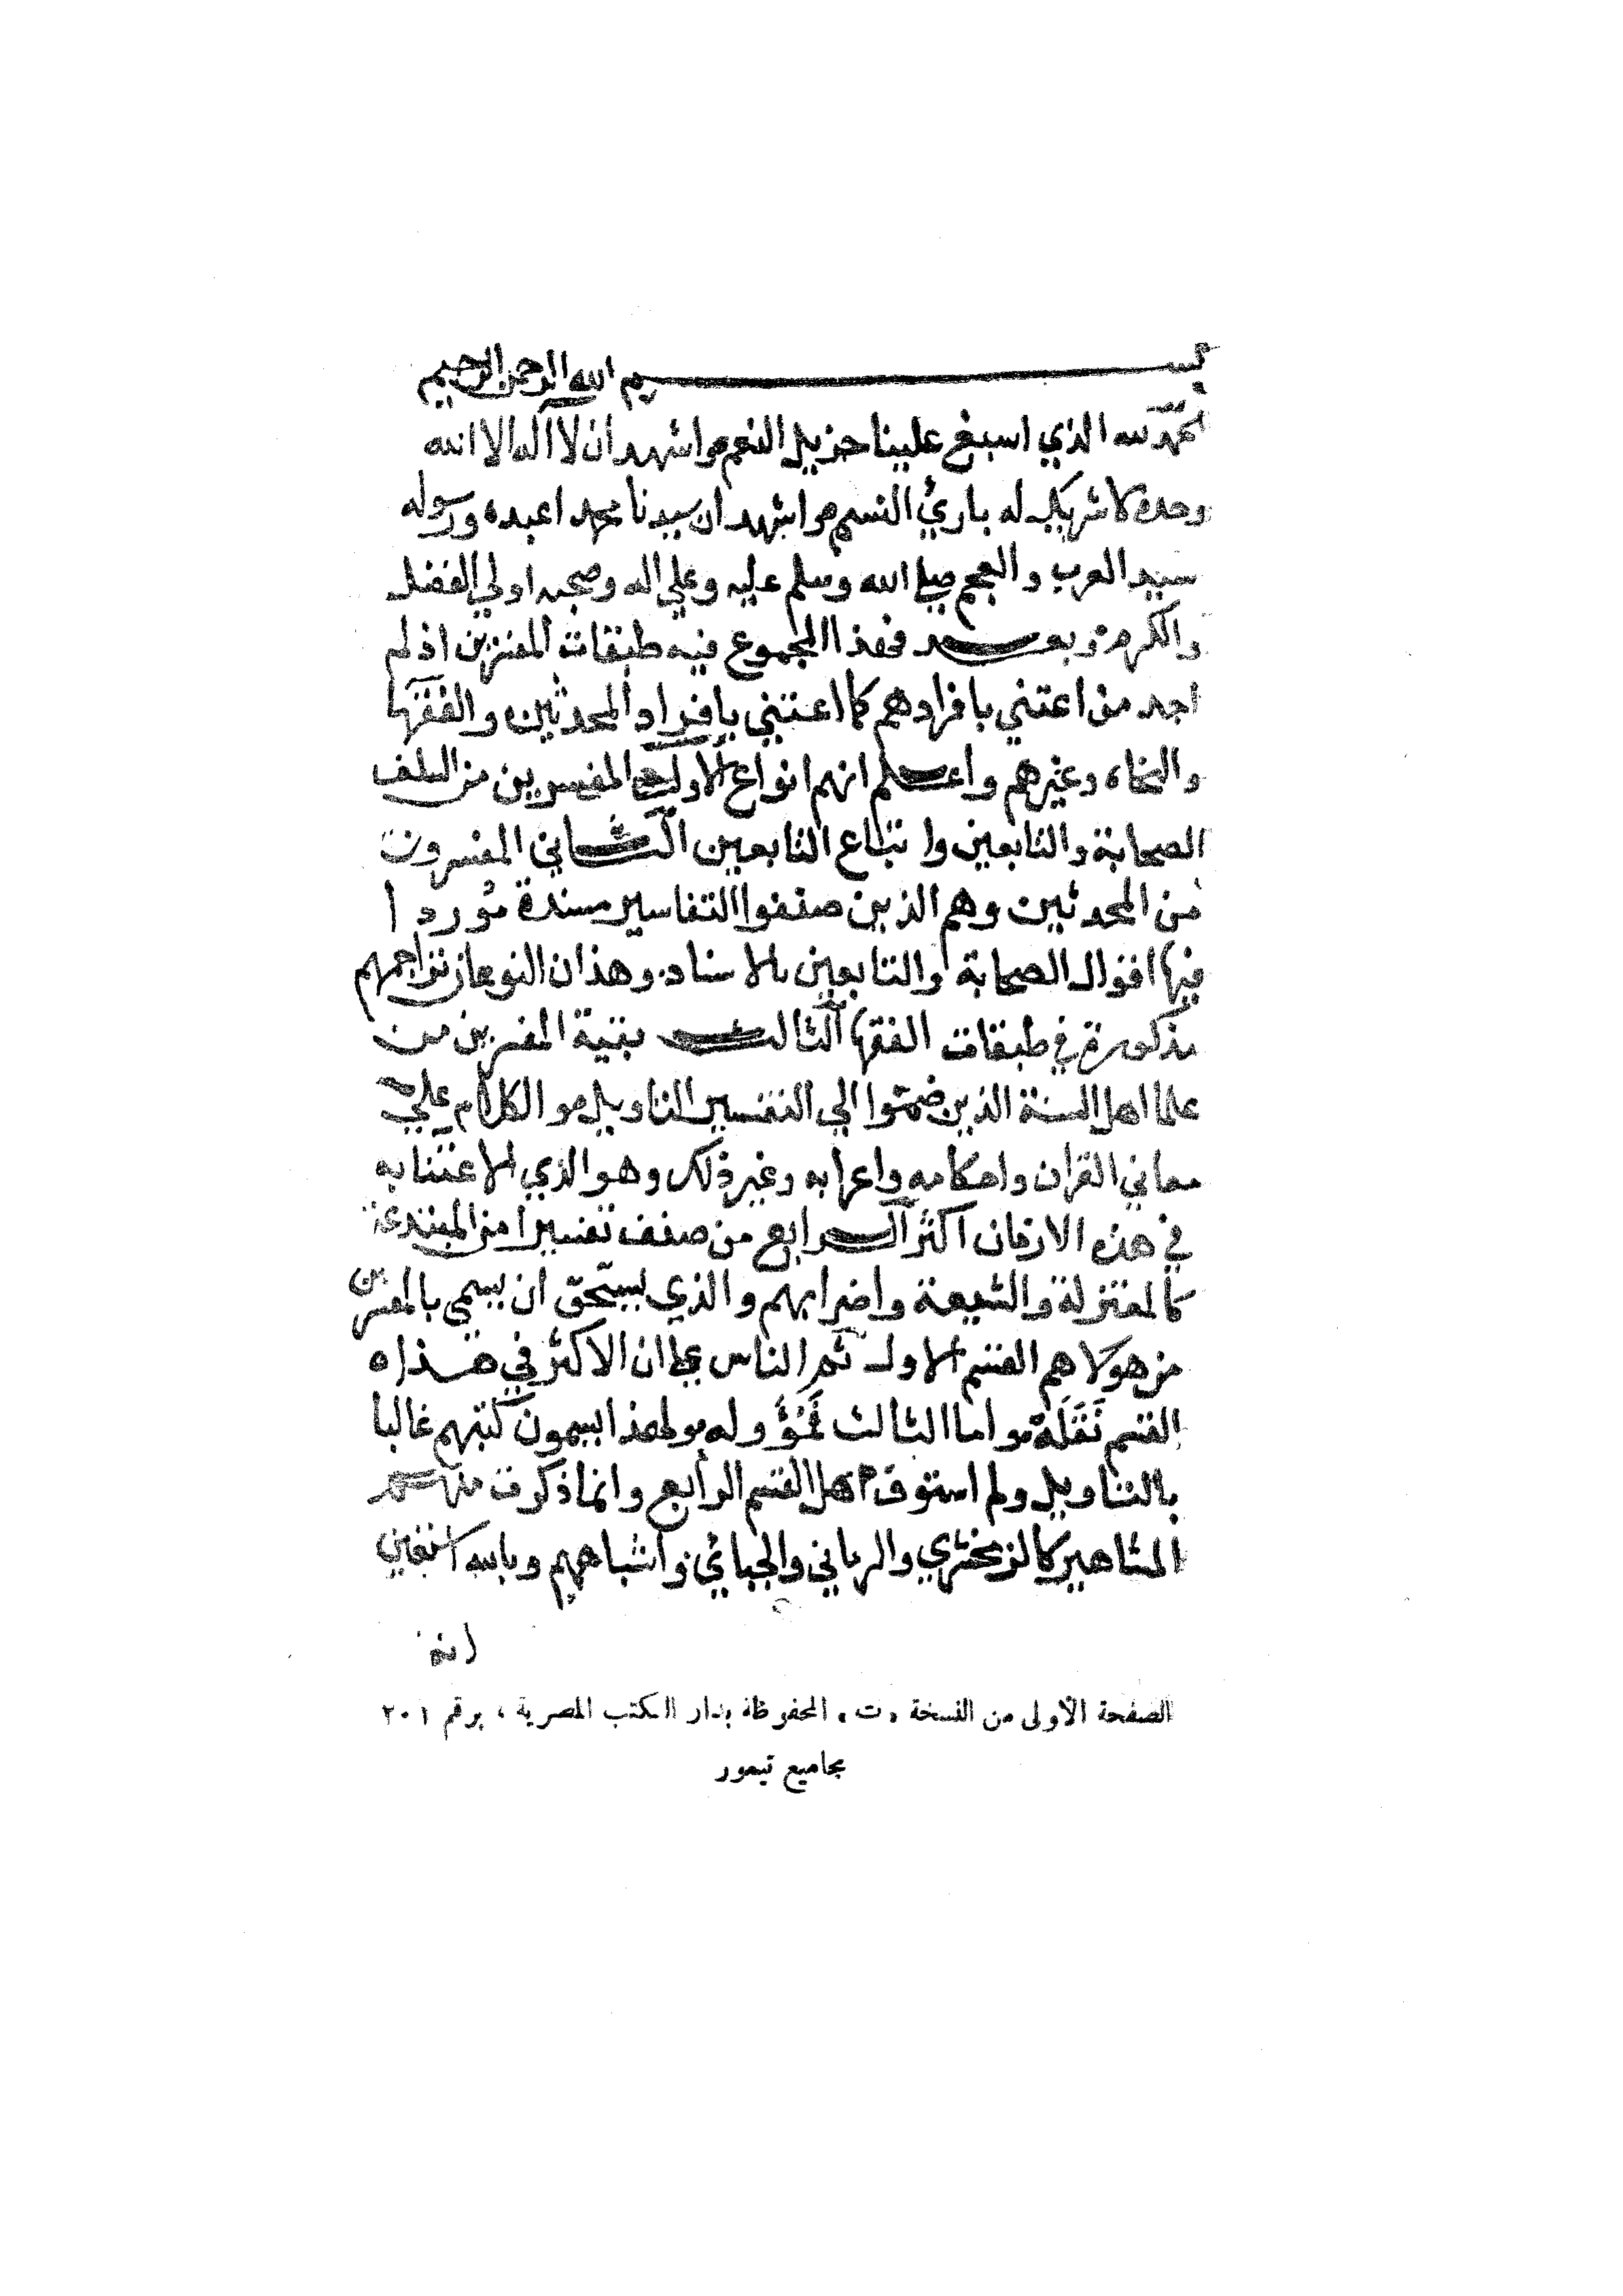 بسم الله الرحمن الرحيم
الحمد لله الذي اسبغ علينا جزيل النعم واشهد ان لا اله الا الله
وحده لا شريك له باري النسم واشهد ان سيدنا محمدا عبده ورسوله
سيد العرب والعجم صلى الله وسلم عليه وعلي اله وصحبه اولي الفضل
والكرم وبعد فهذا المجموع فيه طبقات المفسرين اذ لم
اجد من اعتني بافرادهم كما اعتني بافراد المحدثين والفقها
والنحاه وغيرهم واعلم انهم انواع الاول المفسرين من السلف
الصحابة والتابعين واتباع التابعين الثاني المفسرون
من المحدثين وهم الذين صنفوا التفاسير مسندة مورد ا
فيها اقوال الصحابة والتابعين بالاسناد وهذان النوعان تراجمهم
مذكورة في طبقات الفقها الثالث بقية المفسرين من
علما اهل السنة الذين ضموا الي التفسير التاويل والكلام علي
معاني القران واحكامه واعرابه وغير ذلك وهو الذي الاعتنا به
في هذه الازمان اكثر الرابع من صنف تفسيرا من المبتدعة
كالمعتزلة والشيعة واضرابهم والذي يستحق ان يسمي بالمفسرين
من هولا هم القسم الاول ثم الناس على ان الاكثر في هذا ه
القسم نَقَلَة واما الثالث فمؤوله ولهذا يسمون كتبهم غالبا
بالتاويل ولم استوف اهل القسم الرابع وانما ذكرت منهم
المشاهير كالزمخشري والرماني والجبائي واشباههم وبالله استعين
انه
الصفحة الأولى من النسخة «ت» المحفوظة بدار الكتب المصرية ، برقم ٢٠١
مجاميع تيمور